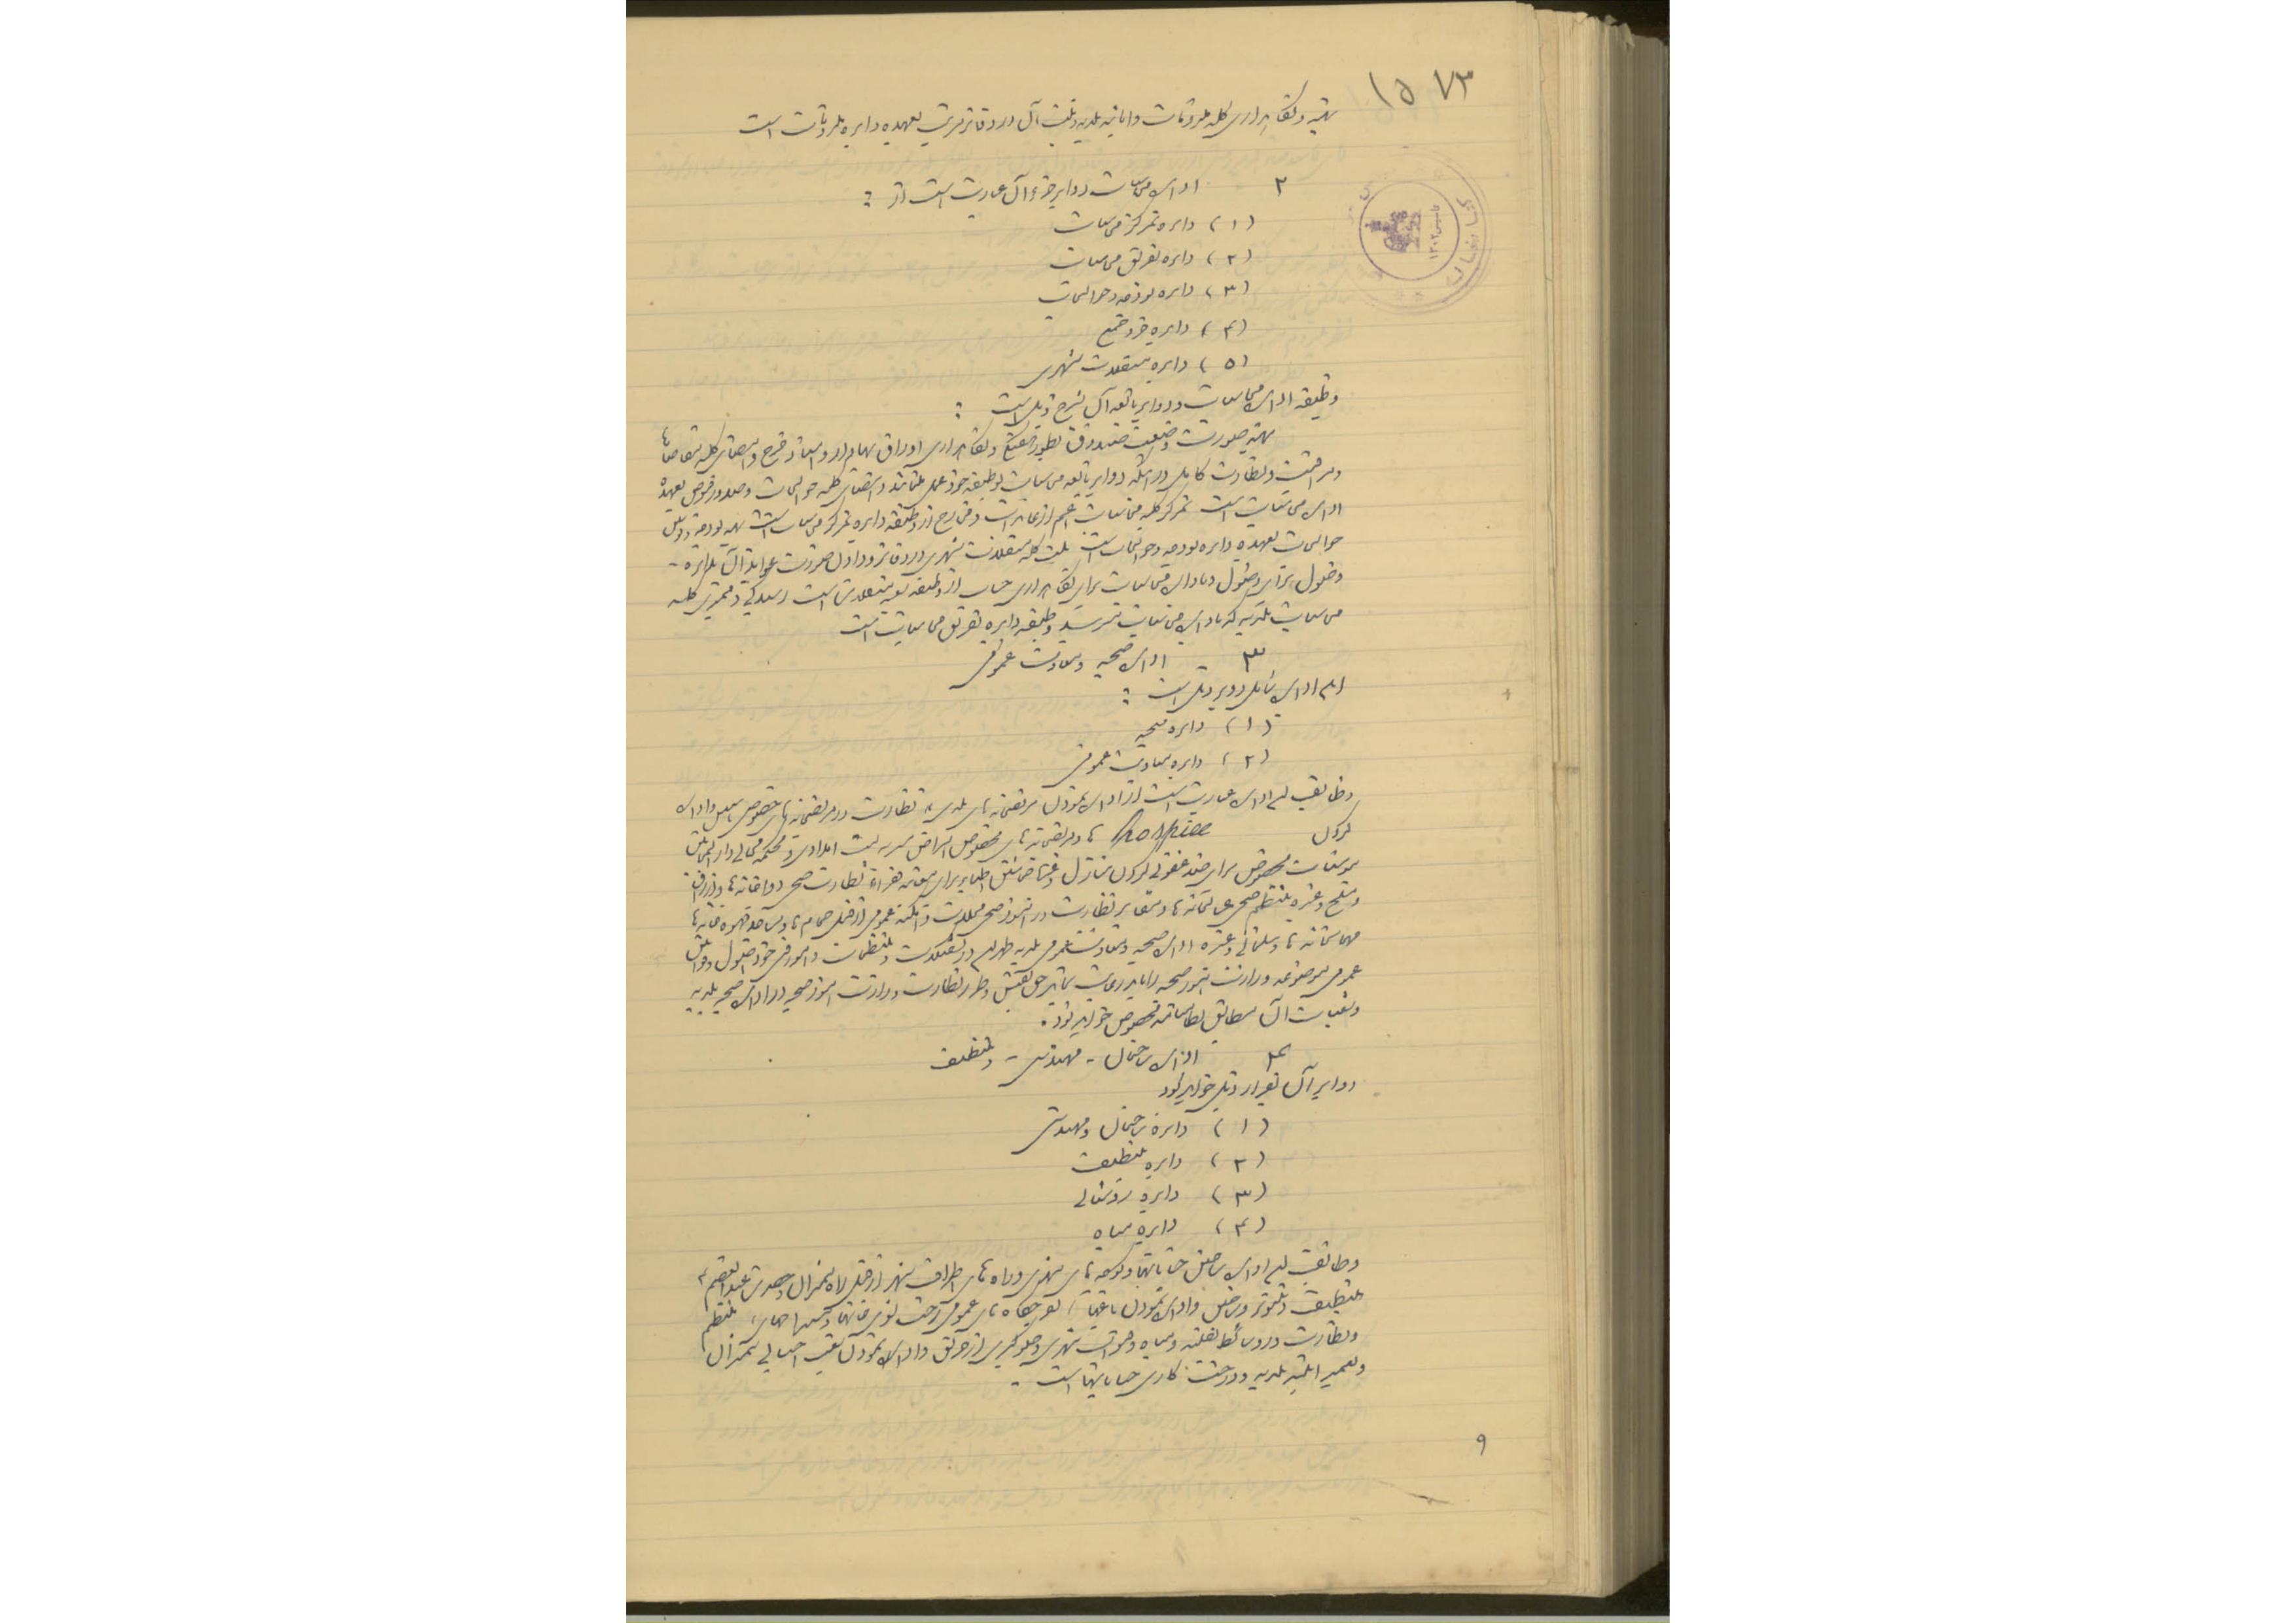 ۷۳ ۱۵
تهیه و نگاهداری کلیه ملزومات و اثاثیه بلدیه و ثبت آن در دفاتر مرتب بعهده دایره ملزومات است
۲ اداره محاسبات دوایر جزء آن عبارت است از :
(۱) دایره تمرکز محاسبات
(۲) دایره تفریق محاسبات
(۳) دایره بودجه و حوالجات
(۴) دایره خرد جمع
(۵) دایره مستغلات شهری
وظیفه اداره محاسبات و دوایر تابعه آن بشرح ذیل است :
تهیه صورت وضعیت صندوق و نگاهداری اوراق بهادار و اسناد خرج و امضای کلیه تقاضاها
و مراقبت و نظارت کامل در اینکه دوایر تابعه محاسبات بوظیفه خود عمل نمایند و امضای کلیه حوالجات و صدور قبوض بعهده
اداره محاسبات است تمرکز کلیه محاسبات اعم از عایدات و مخارج از وظیفه دایره تمرکز محاسبات است تهیه بودجه و
حوالجات بعهده دایره بودجه و حوالجات است ثبت کلیه مستغلات شهری در دفاتر و جداول صورت عواید آن
وصول برای وصول و باداره محاسبات برای نگاهداری حساب از وظیفه مستغلات است رسیدگی و ممیزی کلیه
محاسبات بلدیه که باداره محاسبات میرسد وظیفه دایره تفریق محاسبات است
۳ اداره صحیه و معاونت عمومی
این اداره شامل دو دایره ذیل است :
(۱) دایره صحیه
(۲) دایره معاونت عمومی
وظایف این اداره عبارت است از اداره نمودن مریضخانه های بلدیه نظارت در مریضخانه های خصوصی تاسیس و اداره
کردن hospice ها و مریضخانه های مخصوص امراض مسریه پست امدادی و محکمه مجانی دارالمجانین
موسسات مخصوص برای ضد عفونی کردن منازل اطباء برای معاینه فقراء نظارت صحی دواخانه ها
و مسلخ و غیره تنظیم صحی غسالخانه ها و مقابر نظارت در امور صحی محلات و امکنه عمومی از قبیل حمام ها و مساجد قهوه خانه ها
مهمانخانه ها و سلمانی و غیره اداره صحیه و معاونت عمومی بلدیه طهران در تشکیلات و تنظیمات و امور فنی خود اصول و قوانین
عمومی موضوعه وزارت امور صحیه را باید رعایت نماید حق تفتیش و طرز نظارت وزارت امور صحیه در اداره صحیه بلدیه
و شعبات آن مطابق نظامنامه مخصوص خواهد بود .
۴ اداره ساختمان - مهندسی - و تنظیف
دوایر آن بقرار ذیل خواهد بود
(۱) دایره ساختمان و مهندسی
(۲) دایره تنظیف
(۳) دایره روشنائی
(۴) دایره میاه
وظایف این اداره ساختن خیابانها و کوچه های شهری و راه های اطراف شهر از قبیل راه شمیران و حضرت عبدالعظیم
تنظیف و تنویر و ساختن و اداره نمودن باغها گردشگاه های عمومی رخت شوی خانه ها تنظیم
و نظارت در وسائط نقلیه و میاه و قنوات شهری و جلوگیری از حریق و اداره نمودن
و تعمیر ابنیه بلدیه و درخت کاری خیابانها است -
۹
کتابخانه
تاسیس ۱۳۰۲